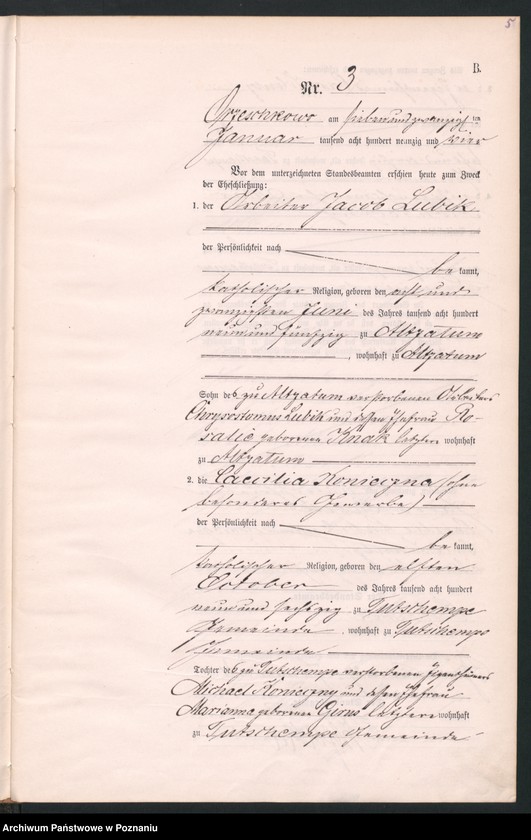 5
B.
Nr. 3
Orzeschkowo am siebenundzwanzigsten
Januar tausend acht hundert neunzig und vier
Vor dem unterzeichneten Standesbeamten erschien heute zum Zweck
der Eheschließung:
1. der Arbeiter Jacob Lubik
der Persönlichkeit nach
be kannt,
katholischer Religion, geboren den acht und
zwanzigsten Juni des Jahres tausend acht hundert
neun und fünfzig zu Altgatum
, wohnhaft zu Altgatum
Sohn des zu Altgatum verstorbenen Arbeiters
Chrysostomus Lubik und dessen Ehefrau Ro-
salie geborenen Knak letztere wohnhaft
zu Altgatum
2. die Caecilia Konieczna (ohne
besonderes Gewerbe)
der Persönlichkeit nach
be kannt,
katholischer Religion, geboren den elften
October des Jahres tausend acht hundert
neun und sechzig zu Tutschempe
Gemeinde , wohnhaft zu Tutschempe
Gemeinde
Tochter des zu Tutschempe verstorbenen Eigenthümers
Michael Konieczny und dessen Ehefrau
Marianna geborenen letztere wohnhaft
zu Tutschempe Gemeinde
Archiwum Państwowe w Poznaniu